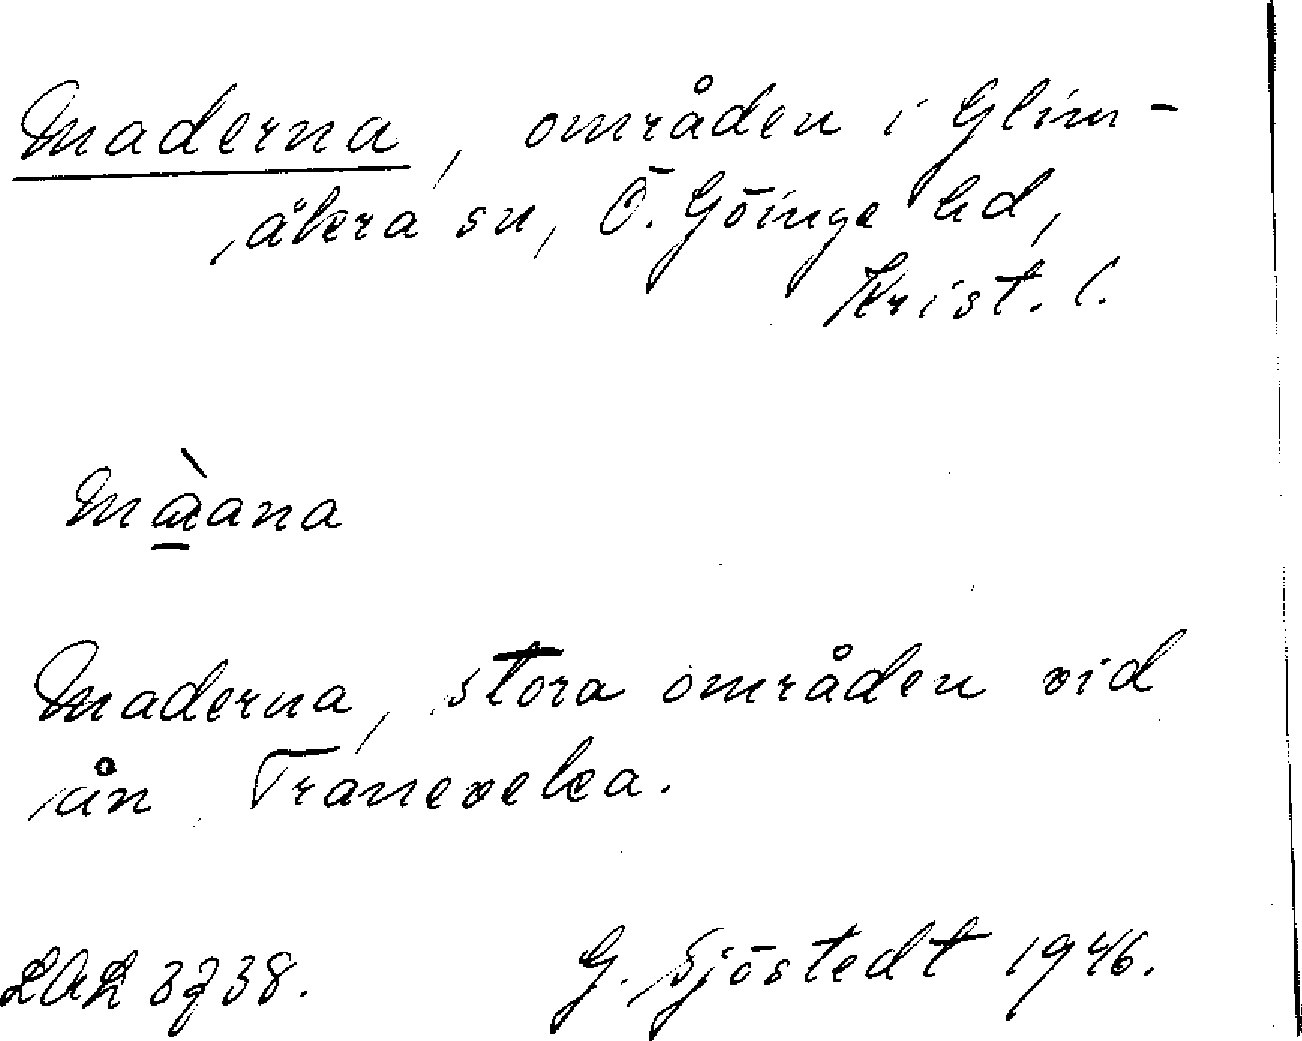 Maderna, områden i Glim-
åkra sn, Ö. Göinge hd,
Krist. l.
Màana
Maderna, stora områden vid
ån Tranevelca.
LAL 3738.
G. Sjöstedt 1946.